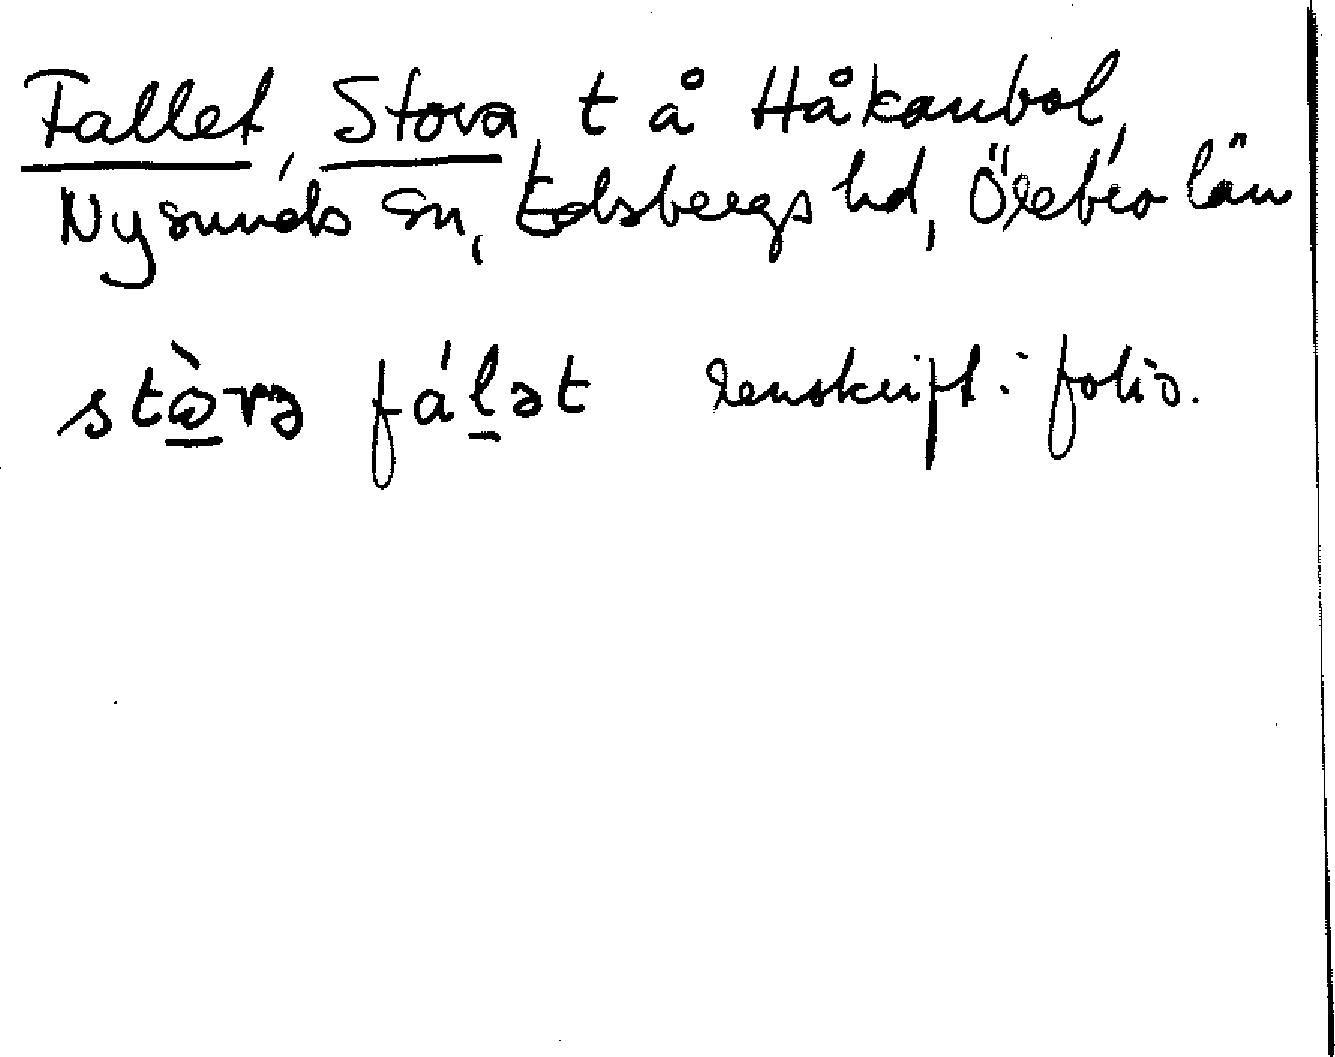 Fallet, Stora, t å Håkanbol,
Nysunds sn, Edsbergs hd, Örebro län
stò̱rə fáḻət renskrift i folio.